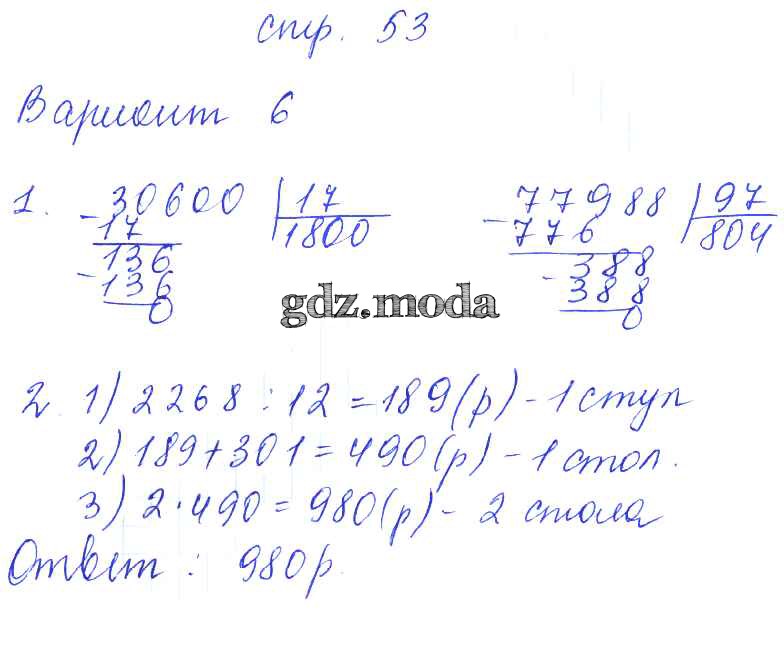 стр. 53
Вариант 6
1. -30600 | 17
17 | 1800
136
-136
0
-77988 | 97
776 | 804
388
-388
0
gdz.moda
2. 1) 2268 : 12 = 189 (р) - 1 стул
2) 189 + 301 = 490 (р) - 1 стол.
3) 2 · 490 = 980 (р) - 2 стола
Ответ : 980 р.